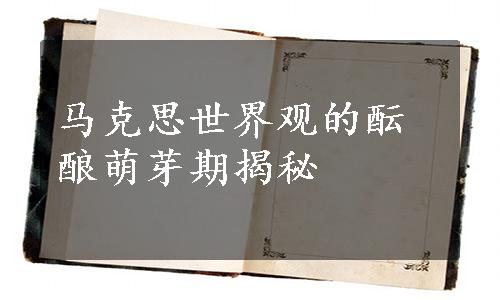 马克思世界观的酝
酿萌芽期揭秘